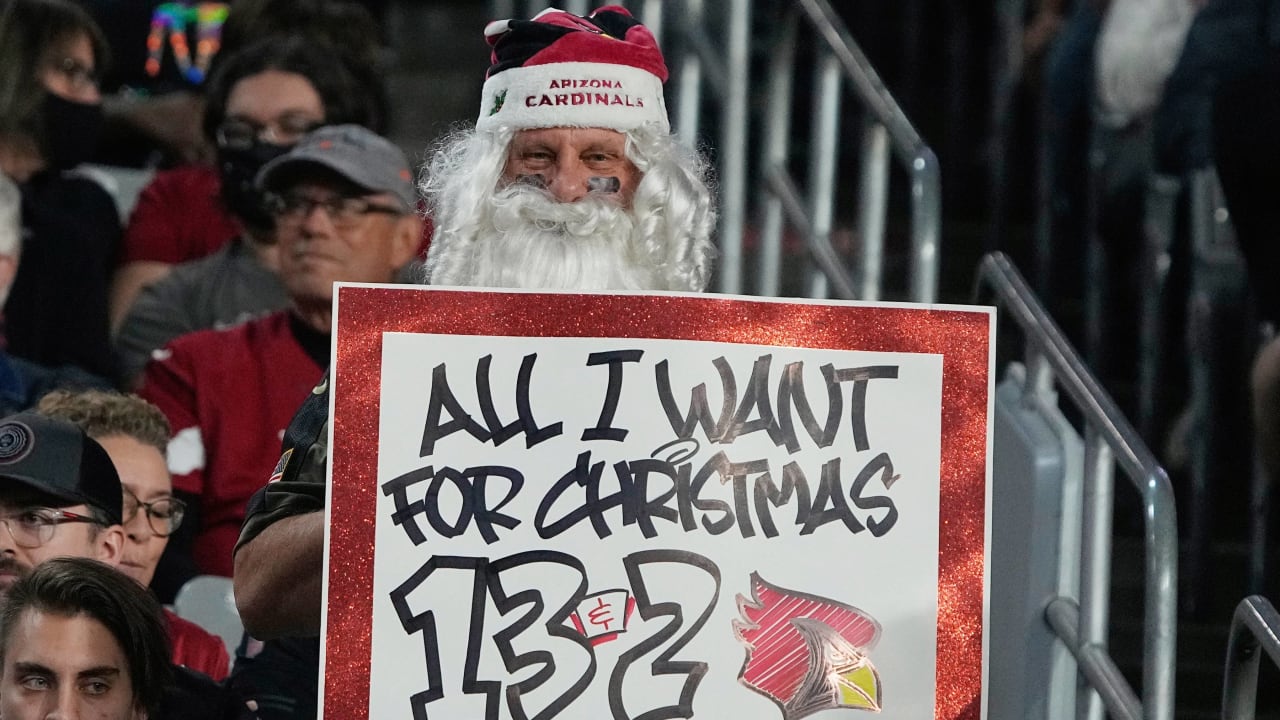 ARIZONA
CARDINALS
ALL I WANT
FOR CHRISTMAS
13 & 2